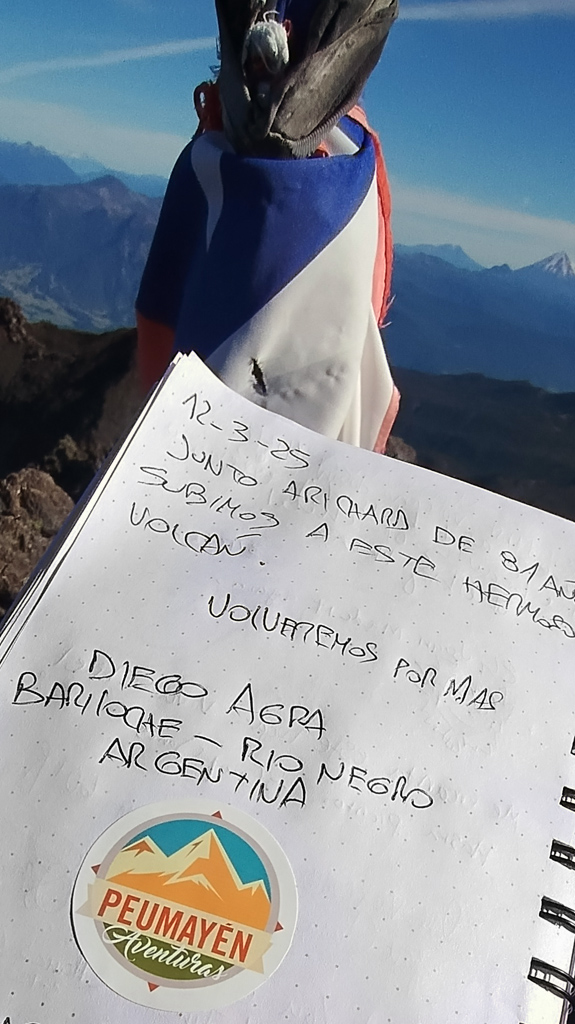 12-3-25
JUNTO A RICHARD DE 81 AÑ
SUBIMOS A ESTE HERMOSO
VOLCAN.
VOLVEREMOS POR MAS
DIEGO AGRA
BARILOCHE - RIO NEGRO
ARGENTINA
PEUMAYÉN
Aventuras